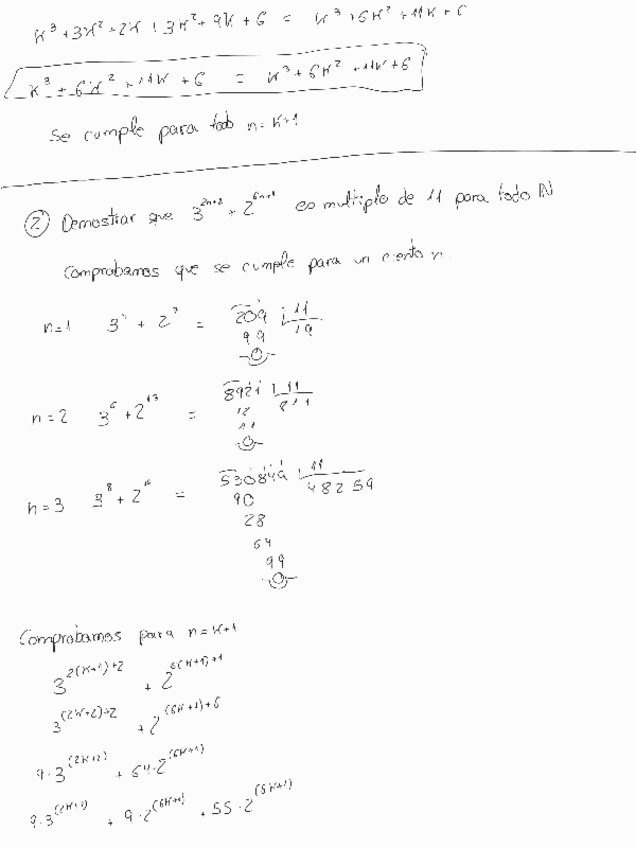 K³+3K²+2K+3K²+9K+6 = K³+6K²+11K+6
K³+6K²+11K+6 = K³+6K²+11K+6
Se cumple para todo n=K+1
② Demostrar que 3^(2n+2) + 2^(6n+1) es multiplo de 11 para todo N
Comprobamos que se cumple para un cierto n.
n=1 3⁴ + 2⁷ = 209 | 11
99 19
0
n=2 3⁶+2¹³ = 8921 | 11
12 811
11
0
n=3 3⁸+2 = 530849 | 11
90 48259
28
64
99
0
Comprobamos para n=K+1
3^(2(K+1)+2) + 2^(6(K+1)+1)
3^((2K+2)+2) + 2^((6K+1)+6)
9·3^((2K+2)) + 64·2^((6K+1))
9·3^((2K+2)) + 9·2^((6K+1)) + 55·2^((6K+1))